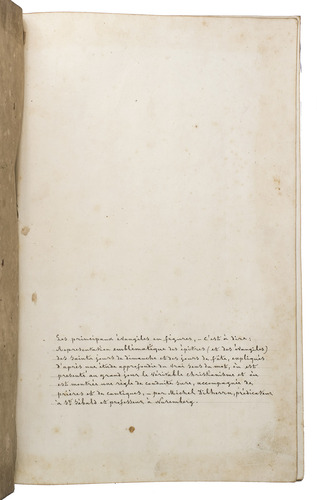 Les principaux évangiles en figures, – c'est à dire :
Représentation emblématique des épitres (et des évangiles)
des Saints jours de dimanche et des jours de fête, expliqués
d'après une étude approfondie du vrai sens du mot, où est
presenté au grand jour le véritable Christianisme et où
est montrée une règle de conduite sure, accompagnée de
prières et de cantiques, – par Michel Dilherrn, prédicateur
à St Sébald et professeur à Nuremberg.